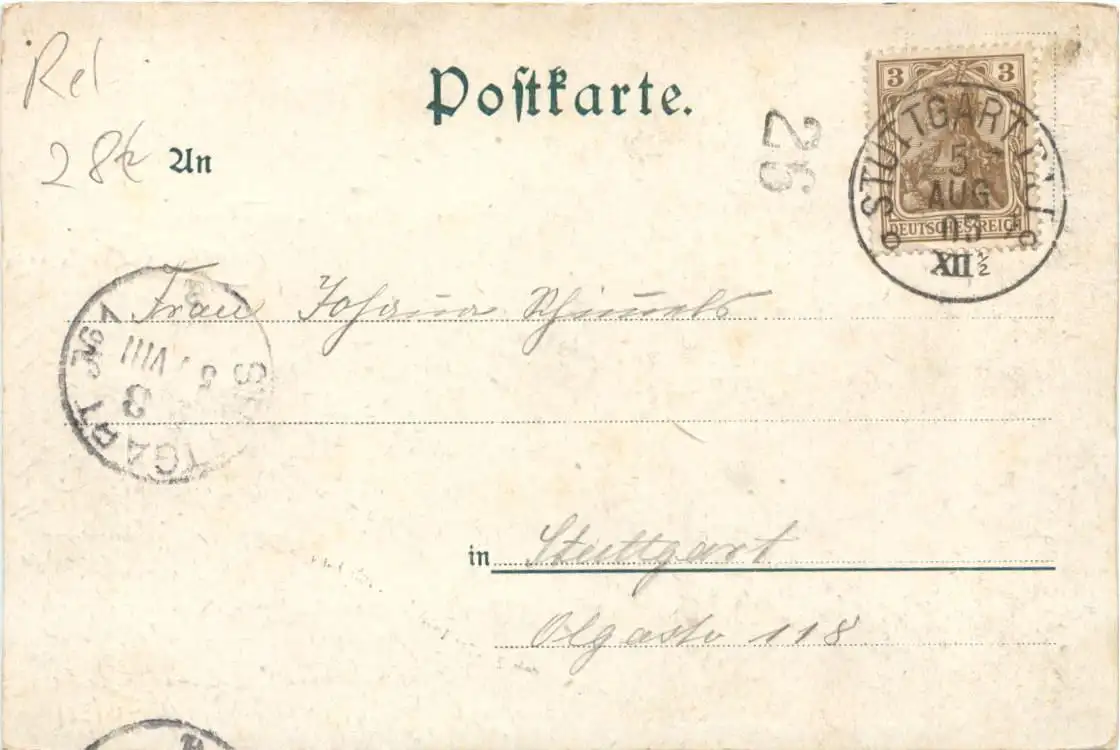 Rel
28
Postkarte.
An
26
3 3
DEUTSCHES REICH
STUTTGART
5
AUG
XII ½
Frau Johanna
5 VIII
3
in Stuttgart
Olgastr 118